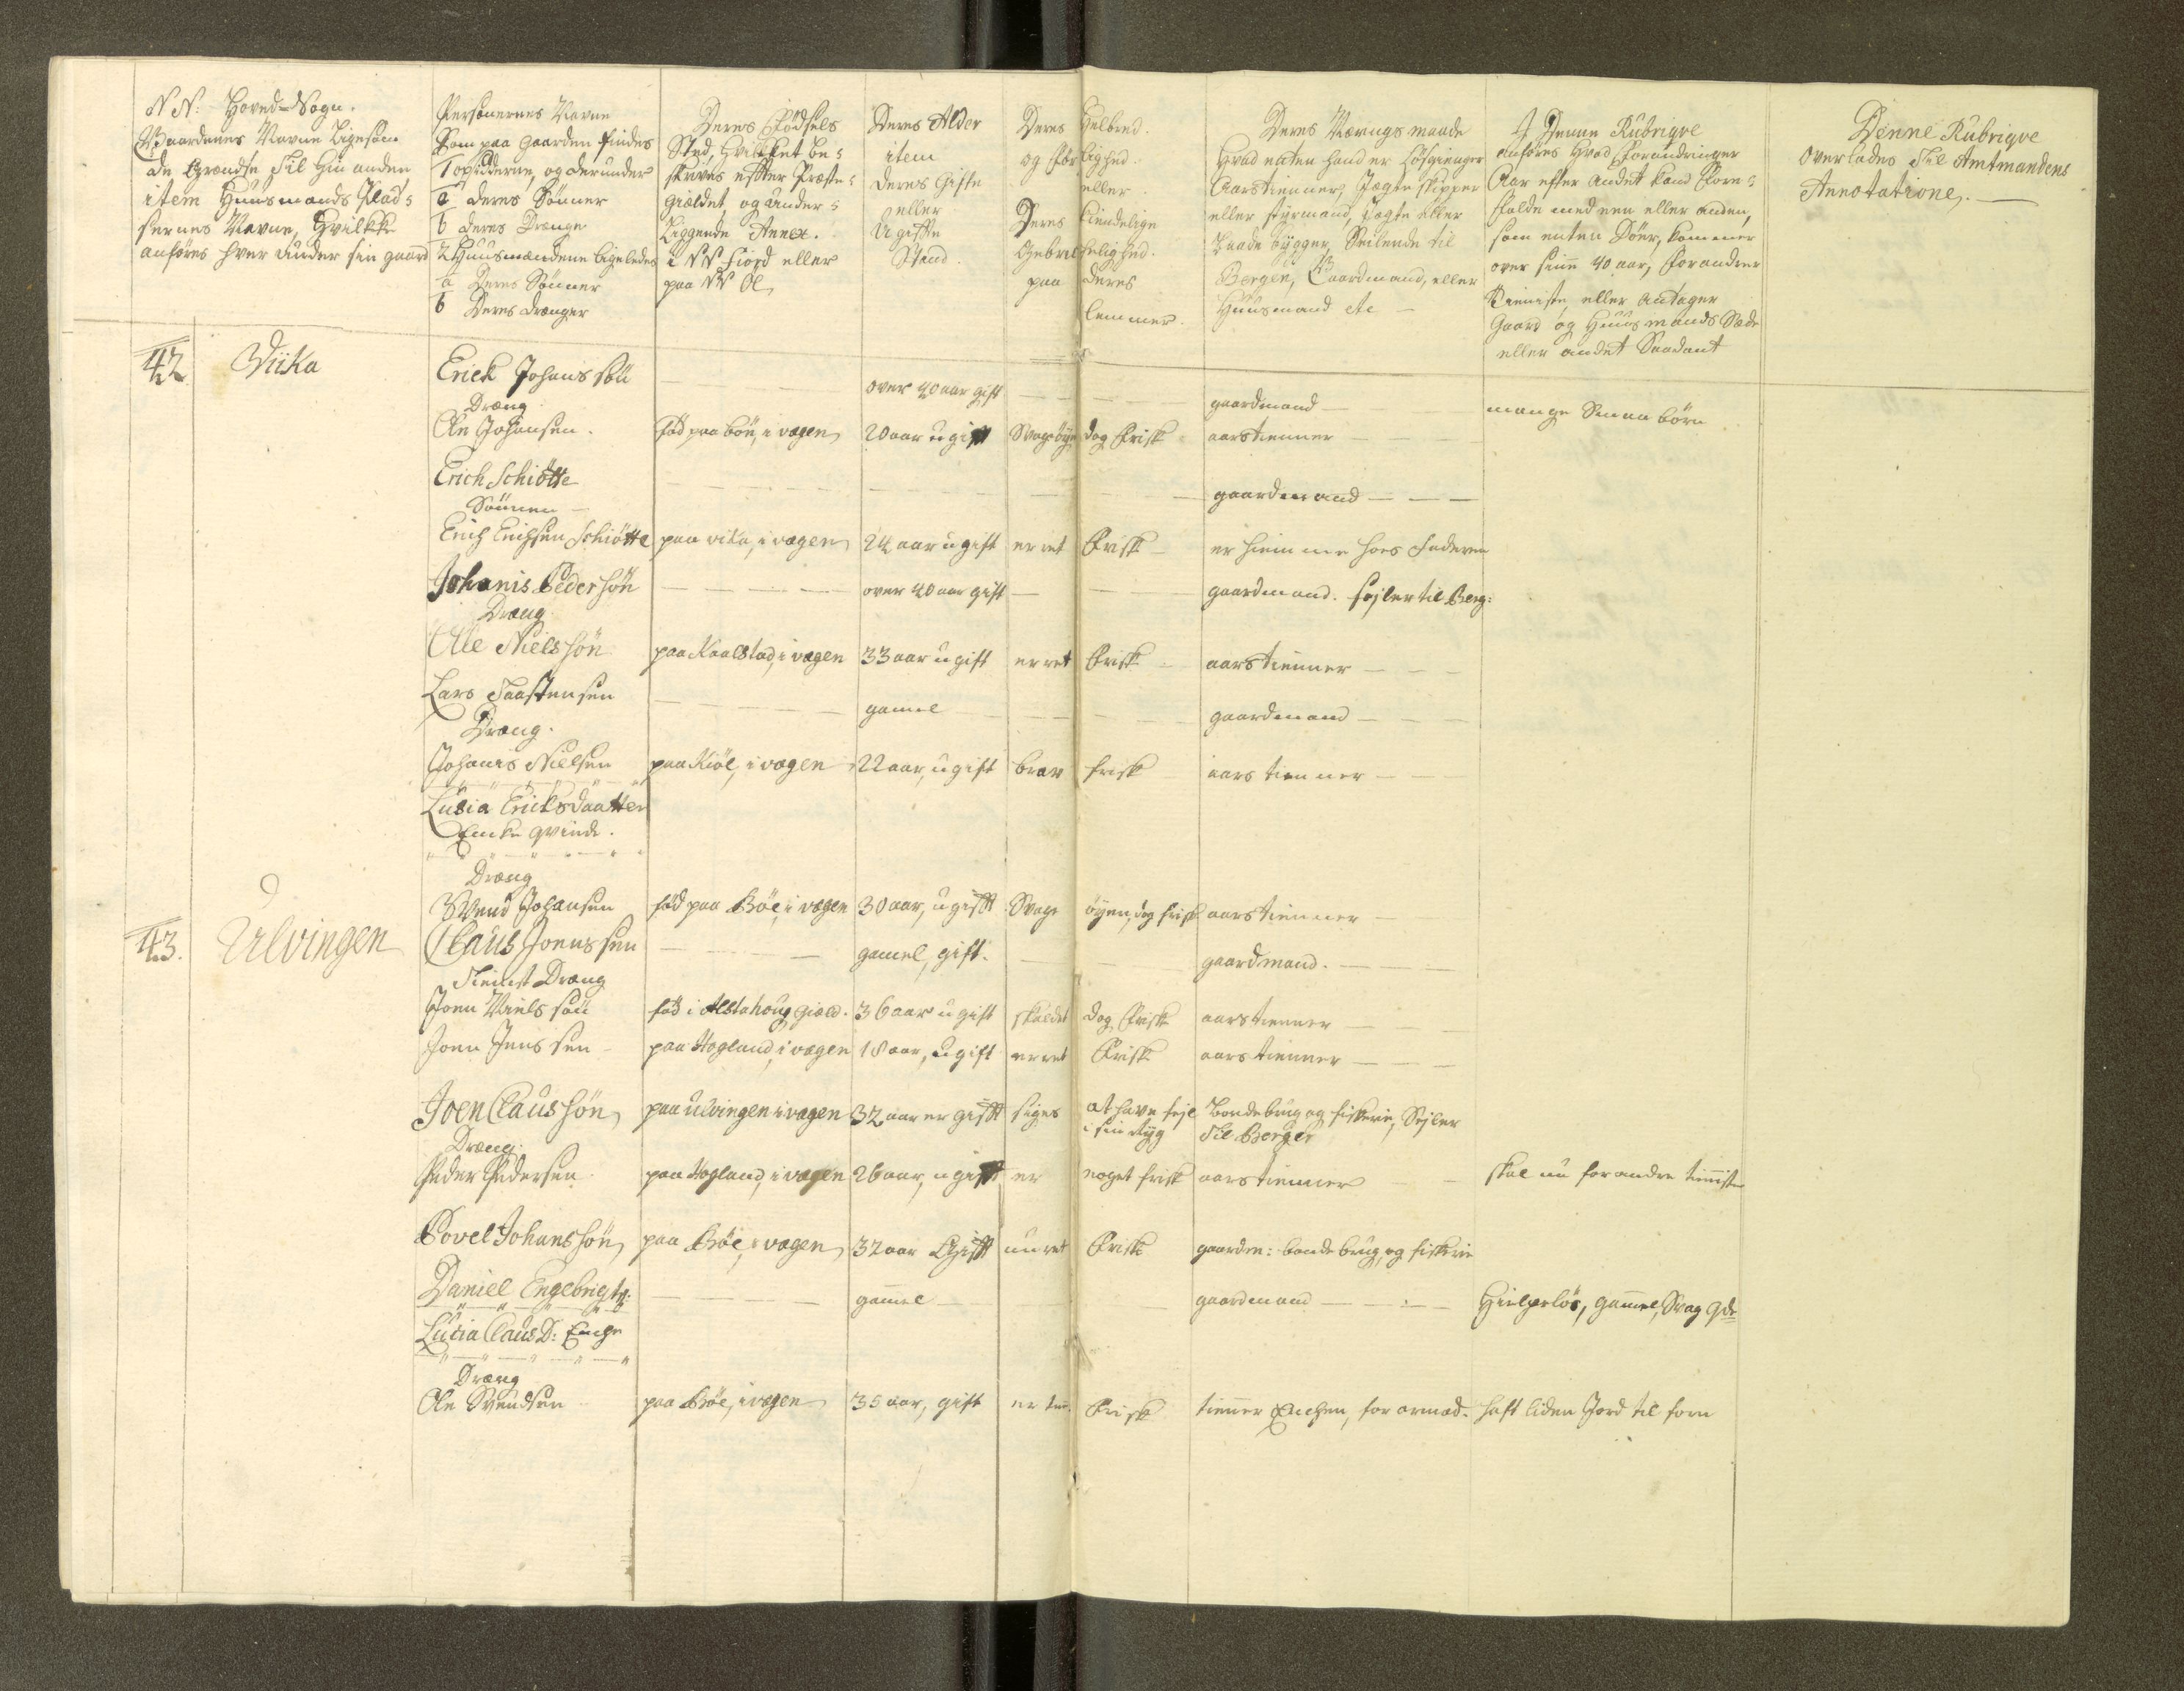 NN: Hoved-Sogn.
Gaardenes Navne Ligesom
de Grændse Til Hin anden
item Huusmands Plad-
sernes Navne, Hvilkke
anføres hver under sin gaard
Personernes Navne
Som paa Gaarden findes
1 Opsidderne, og derunder
a deres Sönner
b deres Drænge
2 Huusmændene ligeledes
a Deres Sönner
b Deres drænger
Deres Födsels
Sted, Hvilket be-
skrives effter Præste-
gieldet og under-
Liggende Annex.
i NN Fiord eller
paa NN Öe
Deres Alder
item
deres Gifte
eller
Ugifte
Stand.
Deres Helbred.
og för lighed.
eller
Deres kiendelige
Gebrekkelighed.
paa deres
lemmer.
Deres Nærings maade
Hvad enten hand er Lösgienger
Aarstienner, Jægte skipper
eller styrmand, Jægte eller
Baade bygger, Seilende til
Bergen, Gaardmand, eller
Huusmand etc
I Denne Rubriqve
anföres Hvad Forandringer
Aar efter andet kand Fore-
falde med een eller anden,
som enten Döer, kommer
over sinne 40 aar, forandrer
Tienniste eller antager
Gaard og Huusmands Sæde
eller andet Saadant
Denne Rubriqve
overlades Til Amtmandens
Annotatione.
42 Viika
Erick Johanssön over 40 aar gift gaardmand mange Smaa börn
Dræng
Ole Johansen. föd paa Böe, i vægen 20 aar ugift Svag öyet dog Frisk aarstienner
Erich Schiötte gaardmand
Sönnen
Erich Erichsen Schiötte paa vika, i vægen 24 aar ugift er ret Frisk er hiemme hoes Faderen
Johanis Pedersön over 40 aar gift gaardmand. sejler til Berg:
Dræng
Olle Nielssön paa Kaalstad, i vægen 33 aar ugift er ret Frisk aarstienner
Lars Taastensen gamel gaardmand
Dræng.
Johanis Nielsen paa Kiöl, i vægen 22 aar, ugift brav frisk aars tienner
Lusia Ericksdaatter
Encke qvinde.
Dræng
Svend Johansen föd paa Böe, i vægen 30 aar, ugifft Svage öyen, dog frisk aarstienner
43. Ulvingen Claus Jonssen gamel, gift. gaardmand.
Tienist Dræng
Joen Nielssön föd i Alstahoug gield. 36 aar ugift skaldet dog Frisk aarstienner
Joen Jenssen paa Hogland, i vægen 18 aar, ugift er ret Frisk aarstienner
Joen Claussön paa ulvingen i vægen 32 aar er gifft siges at have fejl Bondebrug og fiskerie, Sejler
i sin Ryg Til Bergen
Dræng:
Peder Pedersen paa Hogland, i vægen 26 aar, ugifft er noget frisk aarstienner skal nu forandre tienniste
Povel Johanssön paa Böe, i vægen 32 aar Gifft er ret Frisk gaarden: bonde brug, og fiskerie
Daniel Engebrigts: gamel gaardmand Hielpelös, gammel, Svag
Lucia Claus D: Enche
Dræng
Ole Svendsen paa Böe, i vægen 35 aar, gift er Frisk tienner Enchen, for armod. haft liden Jord til forn